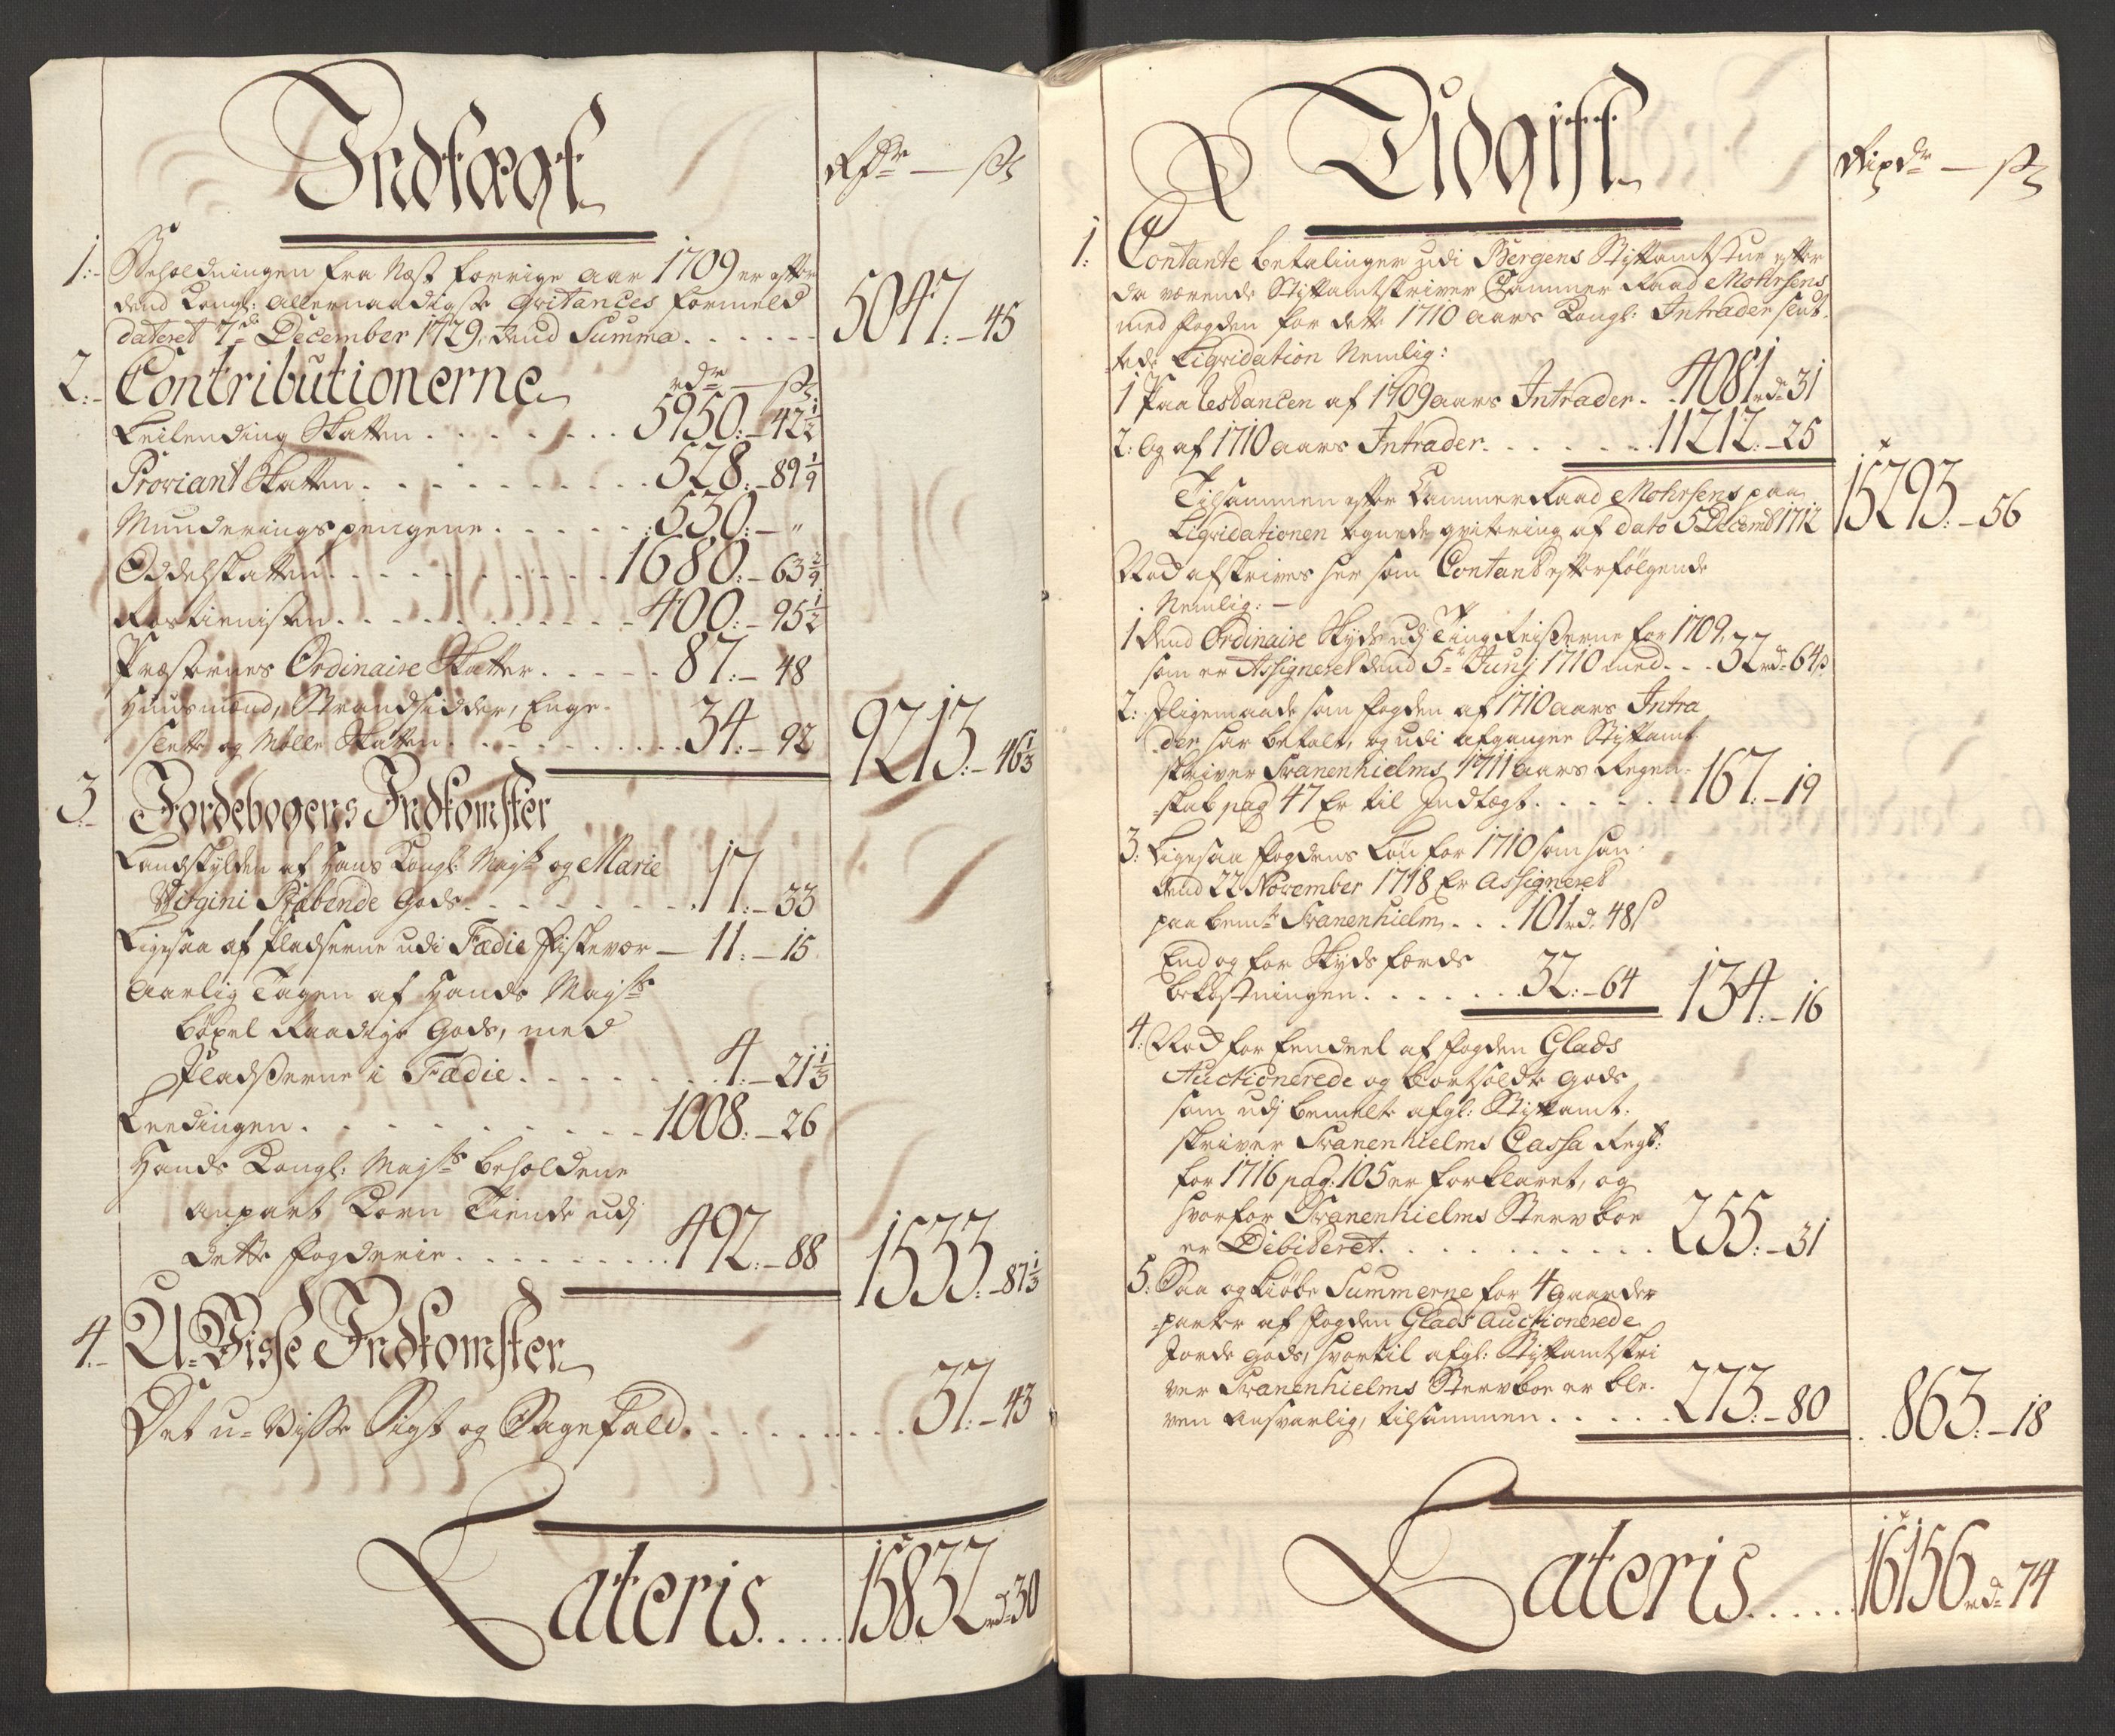 Indtægt
Rdr — ß
1:- Beholdningen fra Næst forrige aar 1709 er efter
dend Kongl: allernaadigste qvitances formeld
dateret 7de December 1729, dend Summa . . . . . . 5047:-45
2:- Contributionerne rdr — ß
Leilending Skatten . . . . . . . 5950:-42½
Proviant Skatten . . . . . . . . 528:-89 1/9
Munderings pengene . . . . . . 530:-"
Oddelskatten . . . . . . . . . . 1680:-63 2/9
Rostienisten . . . . . . . . . . 400:-95½
Præsternes Ordinaire Skatter . . . . . 87:-48
Huusmænd, Strandsidder, Enge-
slette og Mølle Skatten . . . . . . . 34:-92 9213:-46⅓
3:- Jordebogens Indkomster
Landskylden af Hans Kongl: Majts og Marie
Virgini Præbende Gods . . . . . . . . 17:-33
Ligesaa af Pladserne udi Fædie Fiskevær — 11:-15
Aarlig Tagen af Hands Majts
böxel Raadige Gods, med
Pladßerne i Fædie . . . . . . . 4:-21⅓
Leedingen . . . . . . . . . . 1008:-26
Hands Kongl: Majts beholdene
anpart Korn Tiende udj
dette Fogderie . . . . . . . . . 492:-88 1533:-87⅓
4.- U-Visse Indkomster
Det u-Visse Sigt og Sagefald . . . . . . . . . 37:-43
Lateris . . . . . 15832rd-30
Udgift
Rixdr — ß
1: Contante betalinger udi Bergens Stiftamtstue efter
da værende Stiftamtskriver Cammer Raad Mohrsens
med fogden for dette 1710 aars Kongl: Intrader slut-
tede Liqvidation Nemlig:
1 Paa restancen af 1709 aars Intrader . . 4081rd-31
2: Og af 1710 aars Intrader . . . . . . 11212:-25
Tilsammen efter CammerRaad Mohrsens paa
Liqvidationen tegnede qvitering af dato 5 Decemb 1712 15293:-56
Nod afskrives her som Contant efterfølgende
Nemlig:-
1 dend Ordinaire Skyds udj Ting Reißerne for 1709,
som er Assigneret dend 5te Junj 1710 med . . . 32rd-64ß
2: Iligemaade som fogden af 1710 aars Intra
der har betalt, og udi afgangne Stiftamt-
skriver Svanenhielms 1711 aars Regen-
skab pag 47 Er til Indtægt . . . . . . 167:-19
3: Ligesaa fogdens Løn for 1710 som han
dend 22 November 1718 Er Assigneret
paa bemte Svanenhielm . . . 101rd. 48ß
End og for Skyds færds
bekostningen . . . . . . . 32:-64 134:-16
4: Nod for Eendeel af fogden Glads
Auctionerede og bortsoldte Gods
som udj bemelte afgl: Stiftamt-
skriver Svanenhielms Cassa Regsk:
for 1716 pag: 105 er forklaret, og
hvorfor Svanenhielms Stervboe
er Debiteret . . . . . . . . . . 255:-31
5: Saa og Kiøbe Summerne for 4 gaarder
parter af fogden Glads Auctionerede
Jorde Gods, hvortil afgl: Stiftamtskri
ver Svanenhielms Stervboe er ble-
ven Ansvarlig, tilsammen . . . . . 273:-80 . . 863:-18
Lateris . . . . . 16156rd-74